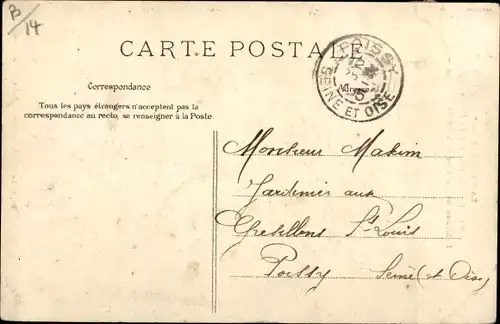 B/14
CARTE POSTALE
POISSY
SEINE ET OISE
Correspondance
Adresse
Tous les pays étrangers n'acceptent pas la
correspondance au recto, se renseigner à la Poste.
Monsieur Maxim
Jardinier aux
Gresillons St-Louis
Poissy Seine (et Oise)